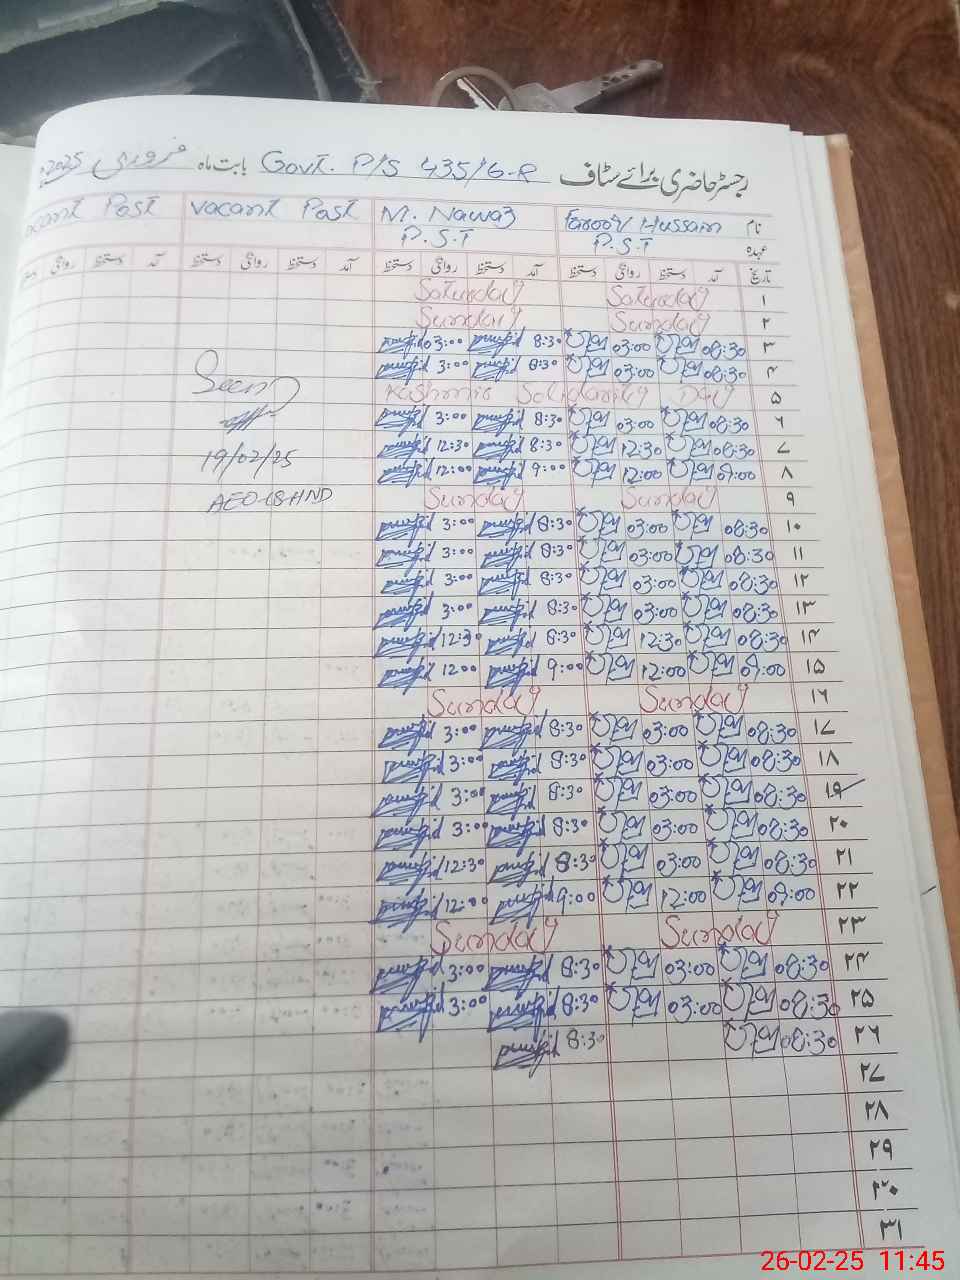 رجسٹر حاضری برائے سٹاف Govt. P/S 435/6-R بابت ماہ فروری 2025ء
نام Farooq Hussain M. Nawaz Vacant Post Vacant Post
عہدہ P.S.T P.S.T
تاریخ آمد دستخط روانگی دستخط آمد دستخط روانگی دستخط آمد دستخط روانگی دستخط آمد دستخط روانگی
۱ Saturday Saturday
۲ Sunday Sunday
۳ 08:30 03:00 8:30 03:00
۴ 08:30 03:00 8:30 3:00
۵ Kashmir Solidarity Day
۶ 08:30 03:00 8:30 3:00
۷ 08:30 12:30 8:30 12:30
۸ 09:00 12:00 9:00 12:00
۹ Sunday Sunday
۱۰ 08:30 03:00 8:30 3:00
۱۱ 08:30 03:00 8:30 3:00
۱۲ 08:30 03:00 8:30 3:00
۱۳ 08:30 03:00 8:30 3:00
۱۴ 08:30 12:30 8:30 12:30
۱۵ 09:00 12:00 9:00 12:00
۱۶ Sunday Sunday
۱۷ 08:30 03:00 8:30 3:00
۱۸ 08:30 03:00 8:30 3:00
۱۹ 08:30 03:00 8:30 3:00
۲۰ 08:30 03:00 8:30 3:00
۲۱ 08:30 03:00 8:30 12:30
۲۲ 09:00 12:00 9:00 12:00
۲۳ Sunday Sunday
۲۴ 08:30 03:00 8:30 3:00
۲۵ 08:30 03:00 8:30 3:00
۲۶ 08:30 8:30
۲۷
۲۸
۲۹
۳۰
۳۱
Seen
19/02/25
26-02-25 11:45